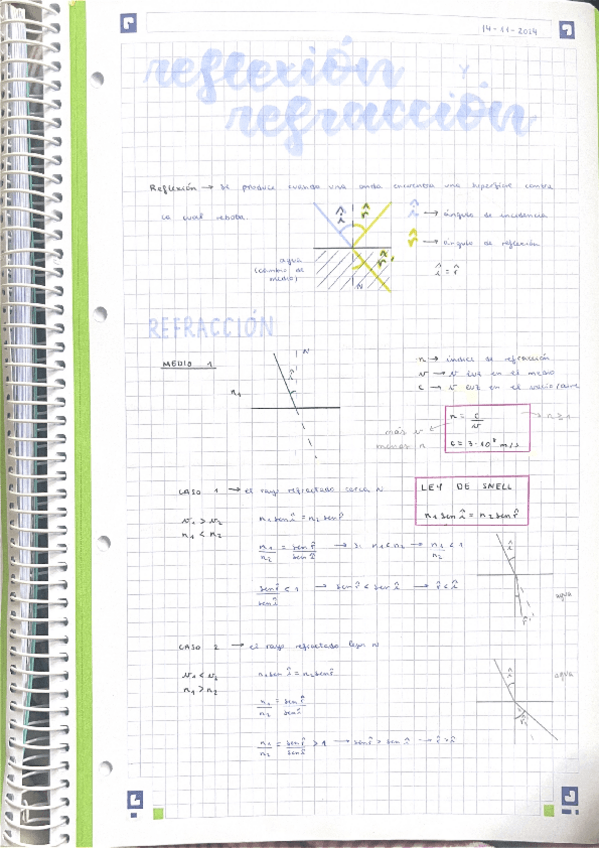 14-11-2024
reflexión y
refracción
Reflexión → Se produce cuando una onda encuentra una superficie contra
la cual rebota.
î r̂
î → ángulo de incidencia
r̂ → ángulo de reflexión
î = r̂
agua
(cambio de
medio)
r̂'
N
REFRACCIÓN
MEDIO 1
n₁
N
î
n → índice de refracción
v → v luz en el medio
c → v luz en el vacío/aire
n = c/v → n ≥ 1
más v
menos n
c = 3·10⁸ m/s
CASO 1 → el rayo refractado cerca N
LEY DE SNELL
n₁ sen î = n₂ sen r̂
v₁ > v₂
n₁ < n₂
n₁ sen î = n₂ sen r̂
n₁/n₂ = sen r̂/sen î → si n₁ < n₂ → n₁/n₂ < 1
sen r̂/sen î < 1 → sen r̂ < sen î → r̂ < î
î
agua
r̂'
CASO 2 → el rayo refractado lejos N
v₁ < v₂
n₁ > n₂
n₁ sen î = n₂ sen r̂
n₁/n₂ = sen r̂/sen î
n₁/n₂ = sen r̂/sen î > 1 → sen r̂ > sen î → r̂ > î
î
agua